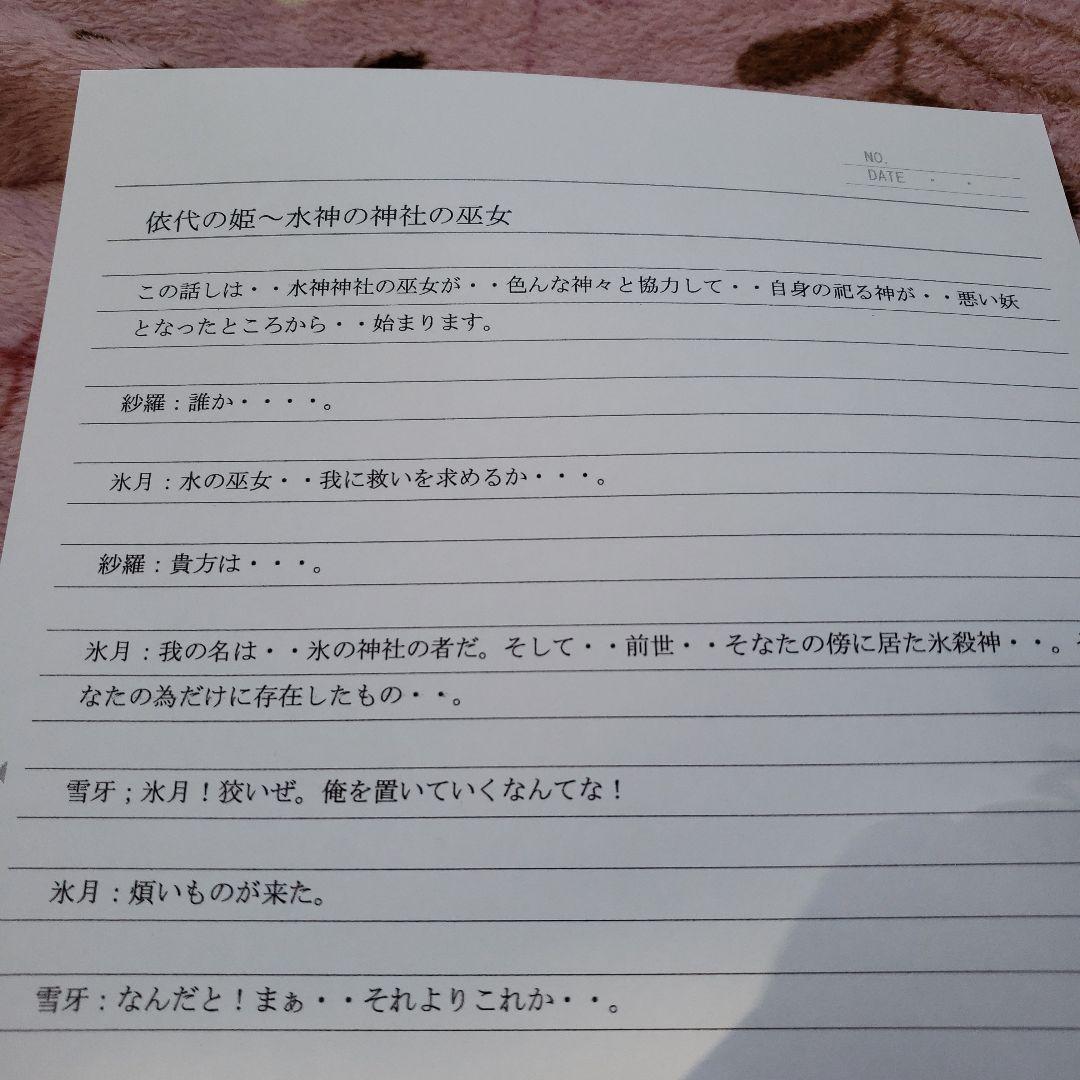 NO.
DATE ・ ・
依代の姫～水神の神社の巫女
この話しは・・水神神社の巫女が・・色んな神々と協力して・・自身の祀る神が・・悪い妖
となったところから・・始まります。
紗羅：誰か・・・・。
氷月：水の巫女・・我に救いを求めるか・・・。
紗羅：貴方は・・・。
氷月：我の名は・・氷の神社の者だ。そして・・前世・・そなたの傍に居た氷殺神・・。
なたの為だけに存在したもの・・。
雪牙；氷月！狡いぜ。俺を置いていくなんてな！
氷月：煩いものが来た。
雪牙：なんだと！まぁ・・それよりこれか・・。